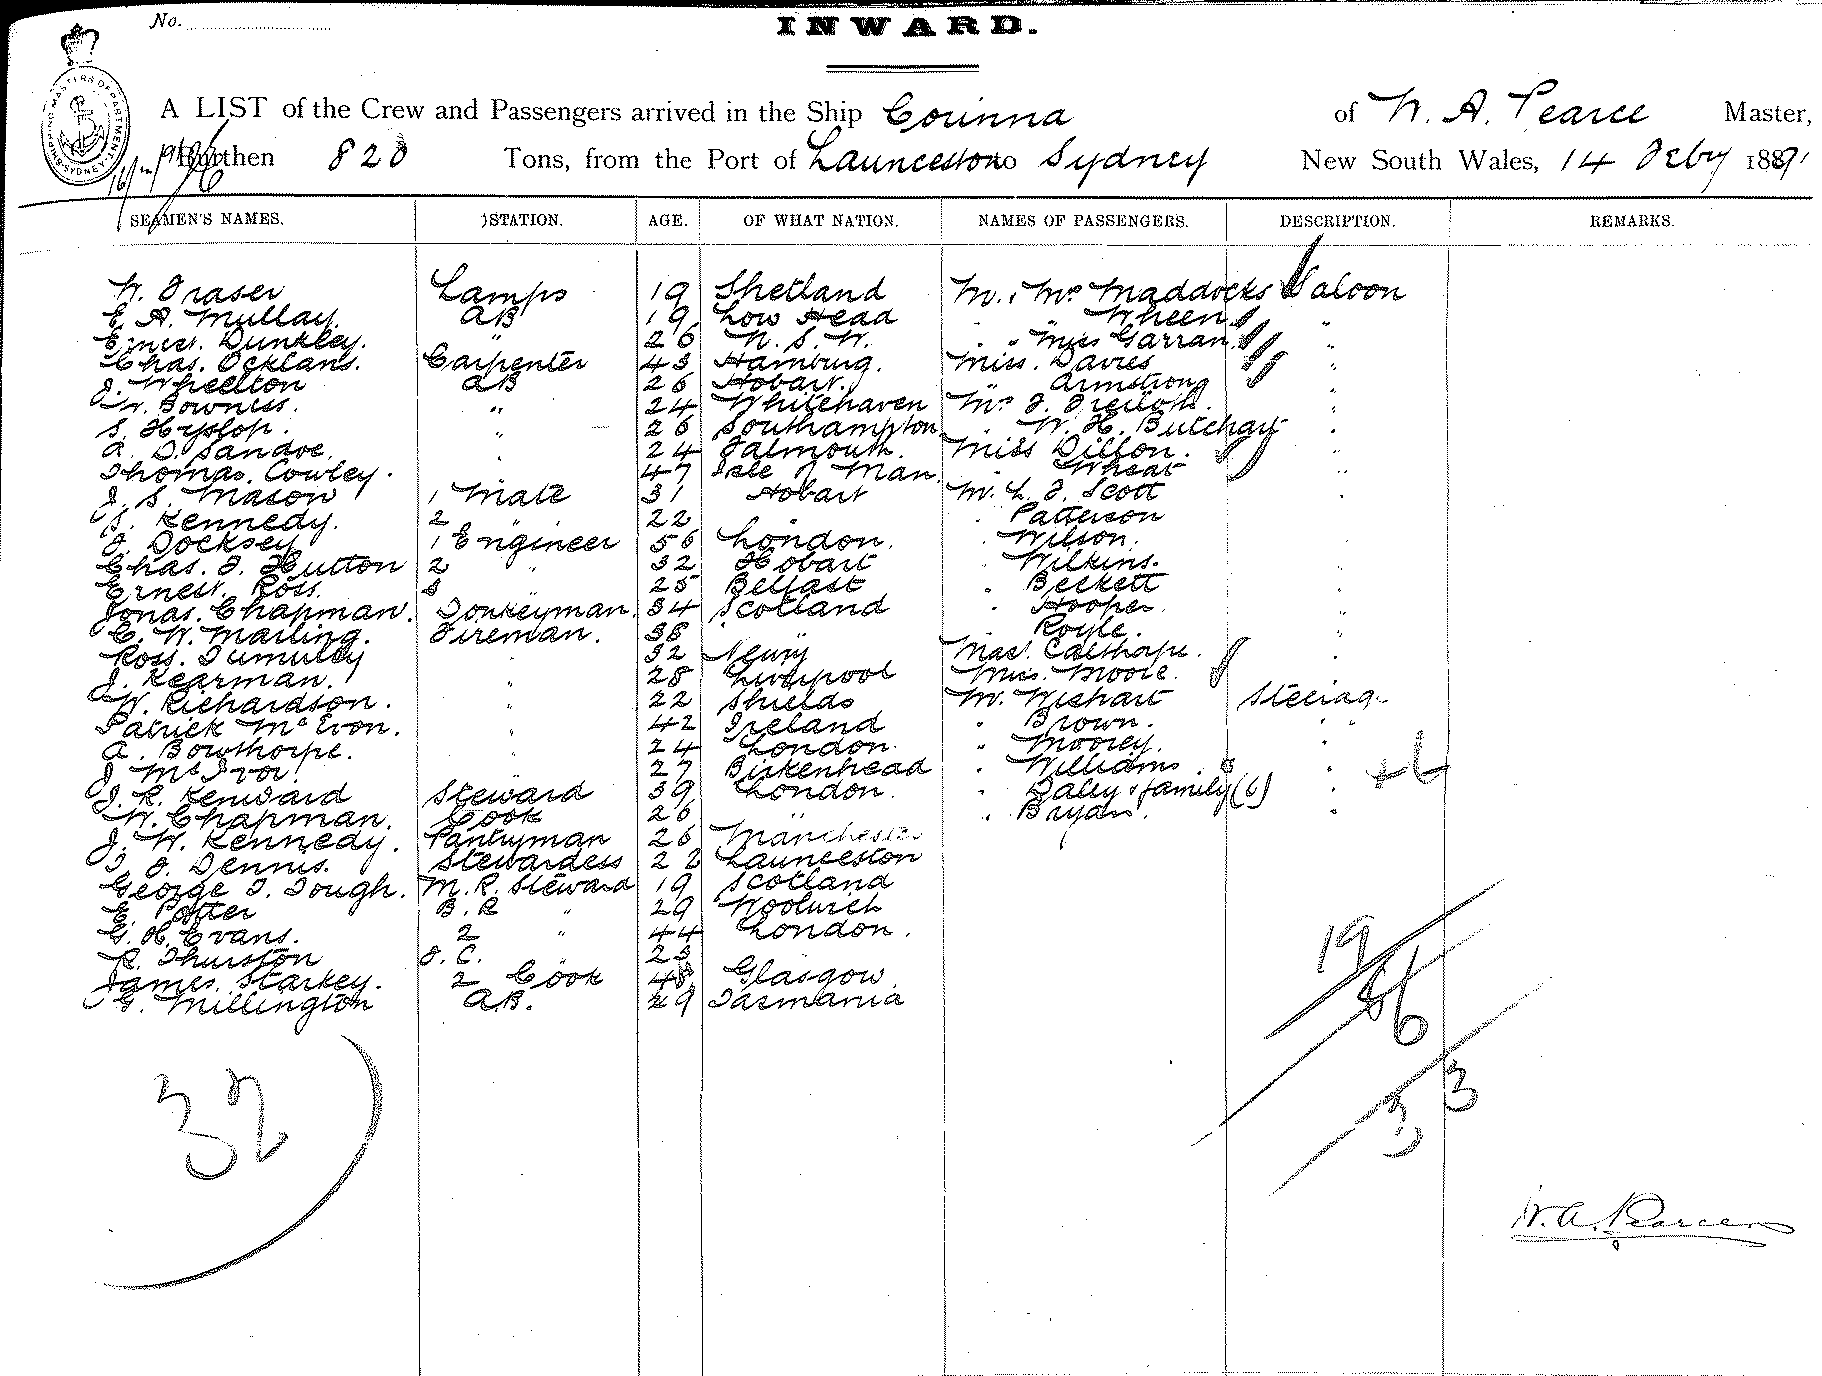 No.
INWARD.
A LIST of the Crew and Passengers arrived in the Ship Corinna of W. A. Pearce Master,
Burthen 820 Tons, from the Port of Launceston to Sydney New South Wales, 14 Feby 1891
SEAMEN'S NAMES. STATION. AGE. OF WHAT NATION. NAMES OF PASSENGERS. DESCRIPTION. REMARKS.
W. Fraser Lamps 19 Shetland Mr. & Mrs Maddocks Saloon
E. A. Mullay AB 19 Low Head " " Wheen "
Ernest. Dunkley. " 26 N. S. W. " " Miss Garran "
Chas. Ocklans. Carpenter 43 Hamburg. Miss. Davies "
J. Wheelton AB 26 Hobart. " Armstrong "
W. Bowness. " 24 Whitehaven Mr J.
S. Hyslop. " 26 Southampton " W. H. Butchay "
A. D. Sandoe. " 24 Falmouth. Miss Dillon. "
Thomas. Cowley. 47 Isle of Man. " Wheat "
J. S. Mason 1 Mate 31 Hobart Mr. L. J. Scott "
J. Kennedy. 2 " 22 " " Patterson
J. Docksey 1 Engineer 56 London. " Wilson. "
Chas. J. Hutton 2 " 32 Hobart " Wilkins. "
Ernest. Ross. 3 " 25 Belfast " Beckett "
Jonas. Chapman. Donkeyman. 34 Scotland " Hooper. "
C. W. Marling. Fireman. 38 " Royle. "
Ross. " 32 Newry Mas. Calthorpe. "
J. Kearman. " 28 Liverpool Miss. Moore.
W. Richardson. " 22 Shields Mr. Wishart Steerage
Patrick McEvon. " 42 Ireland " Brown. " "
A. Bowthorpe. " 24 London. " Moorey. "
J. McIvor. " 27 Birkenhead " Williams " +6
J. R. Kenward Steward 39 London. " Daley & family (6) "
W. Chapman. Cook 26 " " Bryan. "
J. W. Kennedy. Pantryman 26 Manchester
J. J. Dennis. Stewardess 22 Launceston
George T. Tough. M. R. Steward 19 Scotland
E. Potter B. R " 29 Woolwich
G. H. Evans. 2 " 44 London.
R. Thurston F. C. " 23 "
James. Starkey. 2 Cook 48 Glasgow.
G. Millington AB. 29 Tasmania
19
32
33
W. A. Pearce